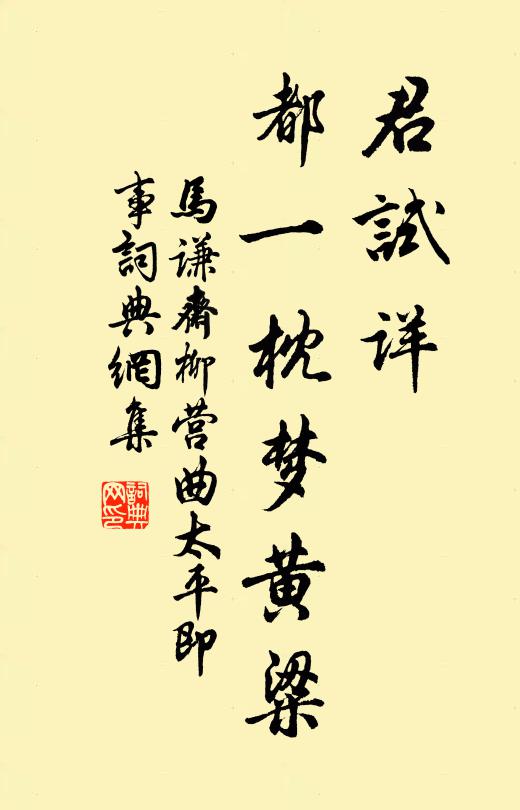 君試详
都一枕梦黄粱
馬谦齋柳营曲太平即
事詞典網集
詞典网印